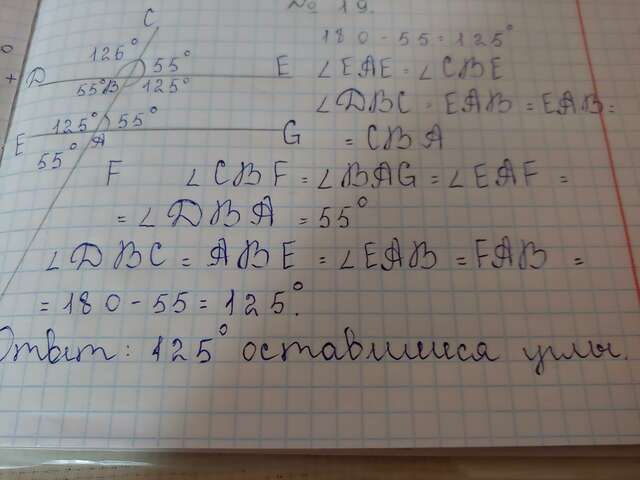 № 19.
C
125° 55°
D E
55° B 125°
125° 55°
E G
55° A
F
180 - 55 = 125°
∠EAE = ∠CBE
∠DBC = EAB = EAB =
= CBA
∠CBF = ∠BAG = ∠EAF =
= ∠DBA = 55°
∠DBC = ABE = ∠EAB = FAB =
= 180 - 55 = 125°.
Ответ: 125° оставшиеся углы.